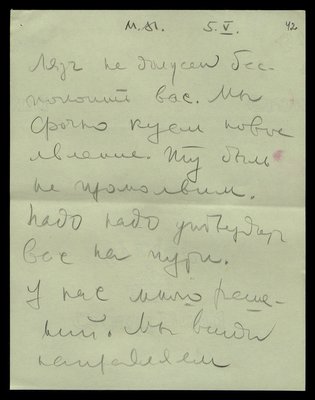 М.М. 5.V. 42
Лязг не должен бес-
покоить вас. Мы
срочно куем новое
явление. Ту быль
не промолвим.
Надо надо утвердить
вас на пути.
У нас много реше-
ний. Мы всюду
направляем